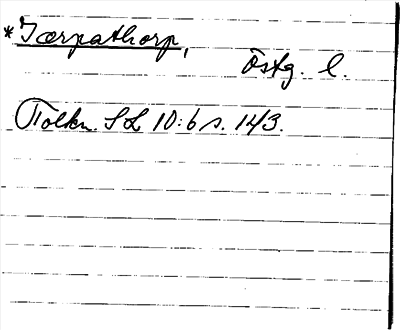 *Tærpathorp,
Östg. l.
Tolkn. SL 10:6 s. 143.